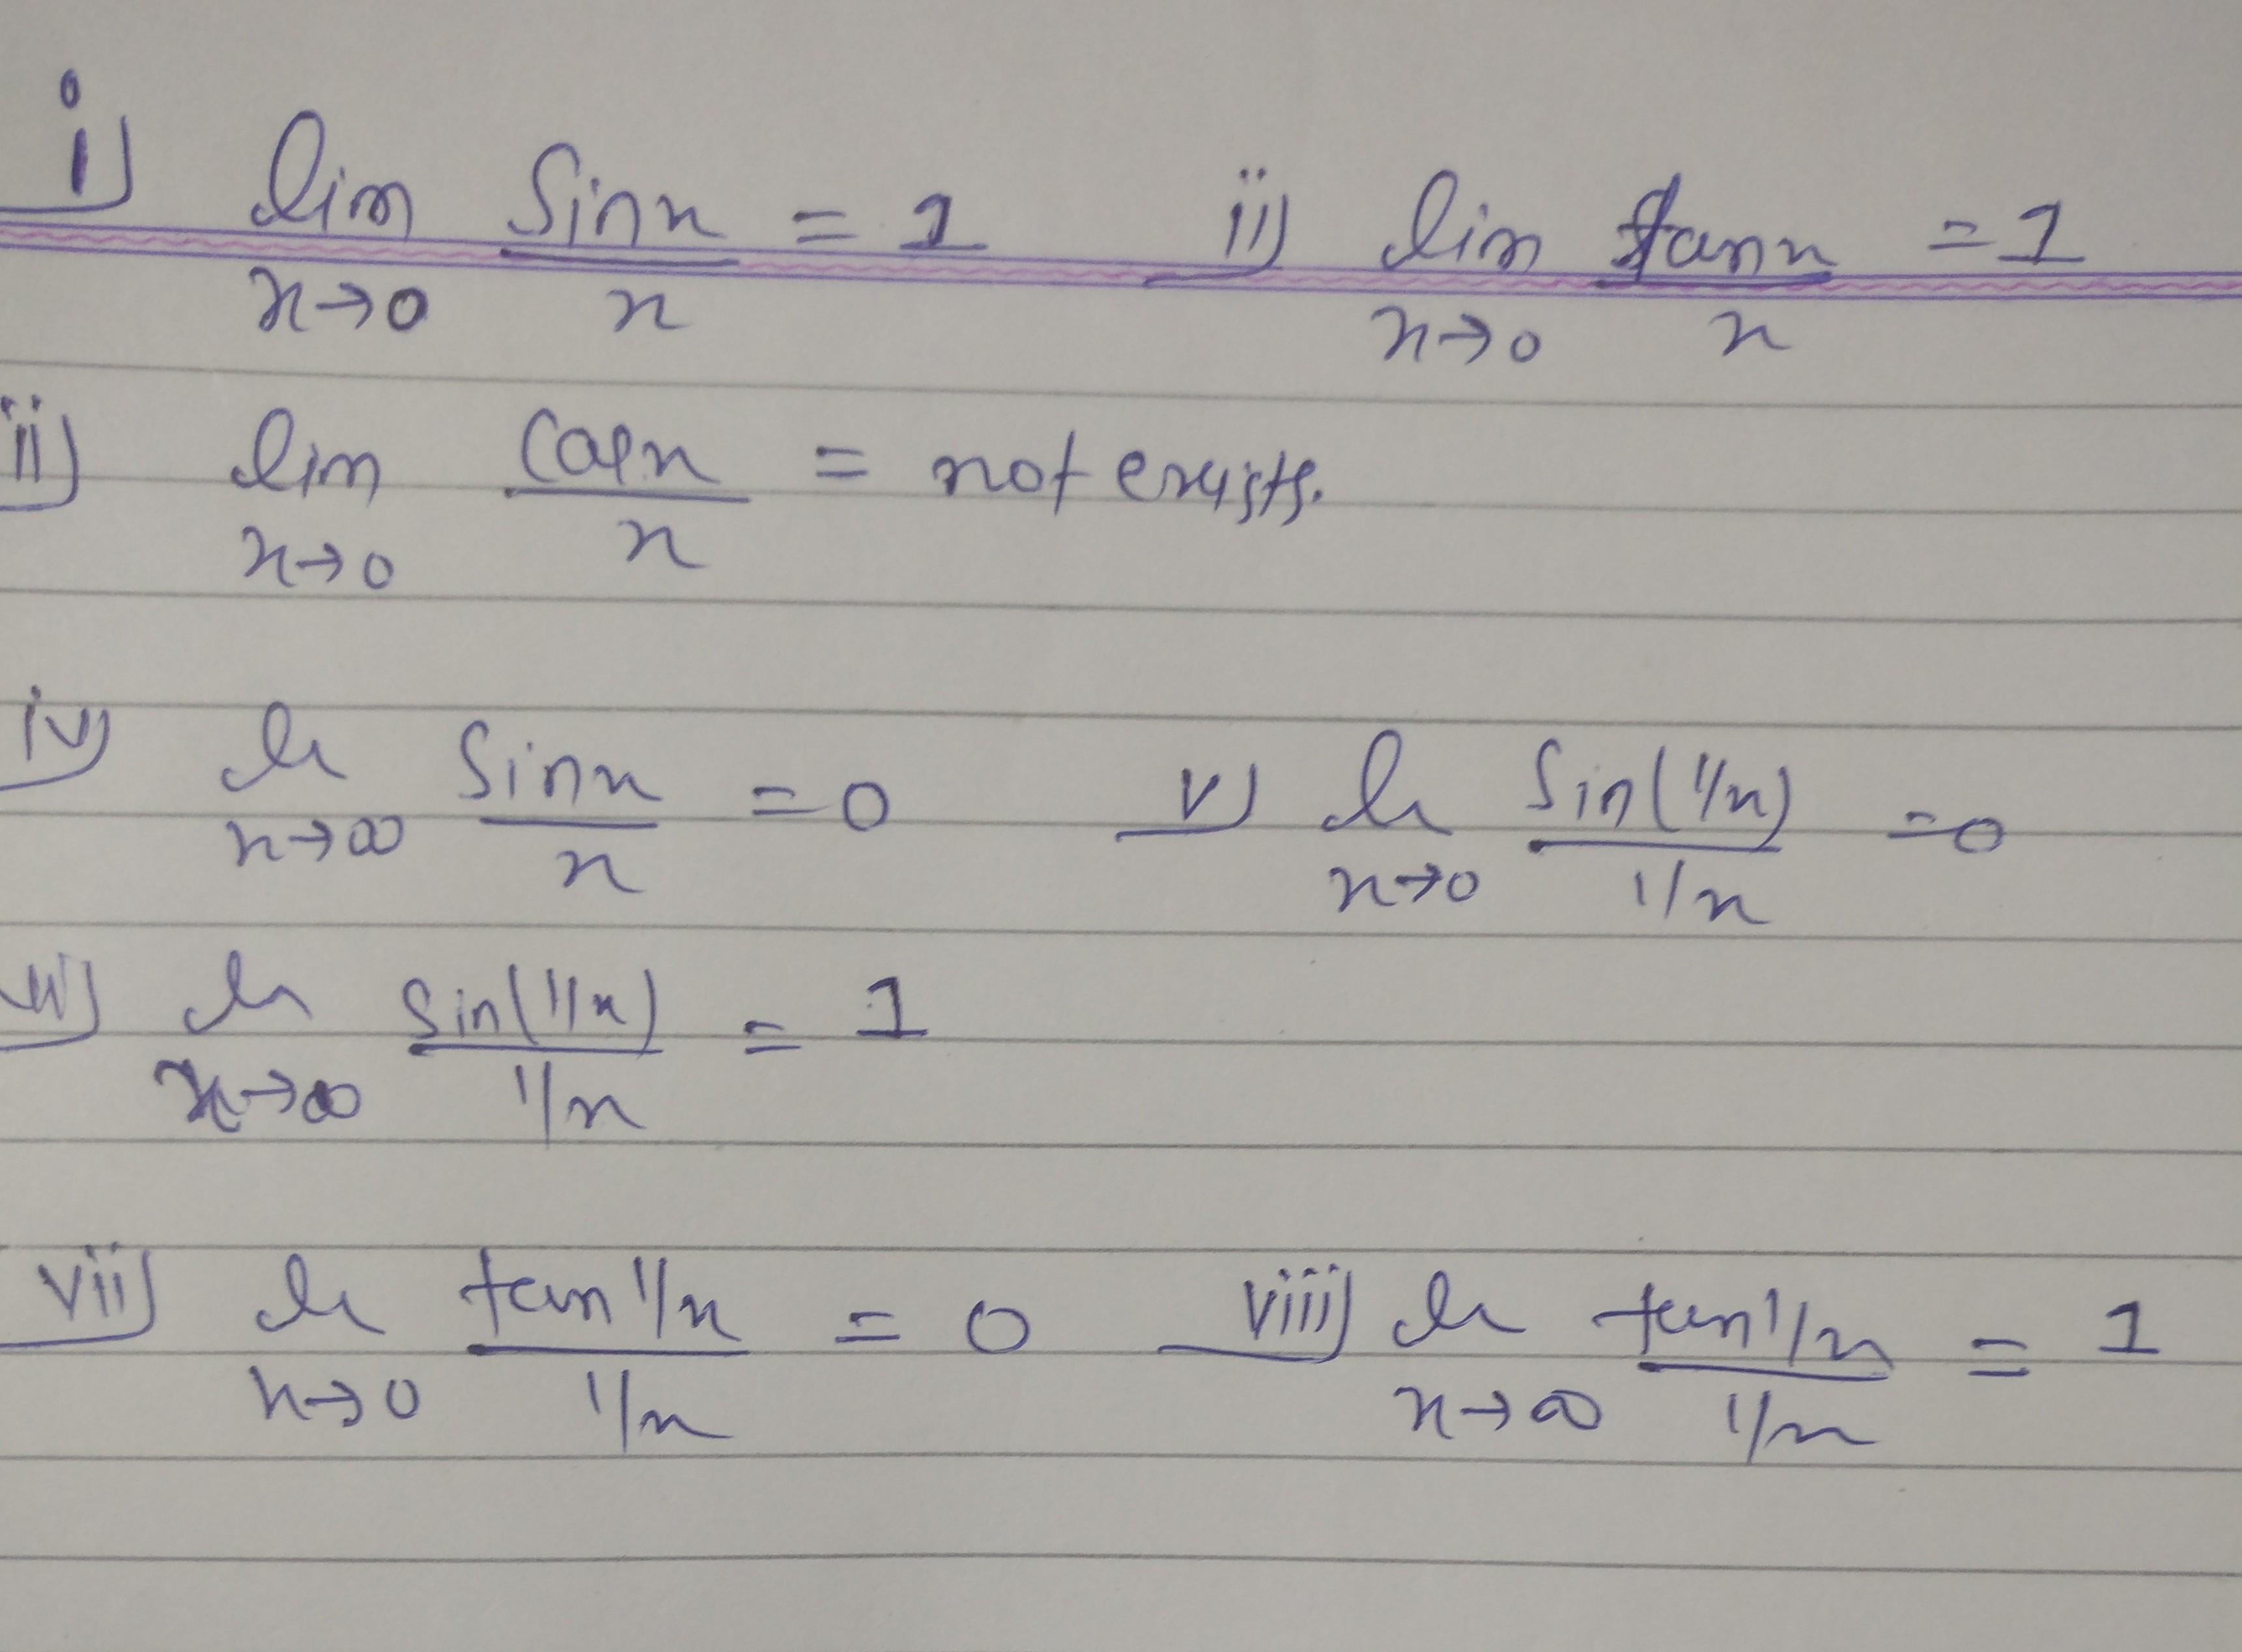 i) lim x→0 Sinx/x = 1 ii) lim x→0 tanx/x = 1
ii) lim x→0 Cosx/x = not exists.
iv) lt x→∞ Sinx/x = 0 v) lt x→0 Sin(1/x)/1/x = 0
vi) lt x→∞ Sin(1/x)/1/x = 1
vii) lt x→0 tan1/x/1/x = 0 viii) lt x→∞ tan1/x/1/x = 1